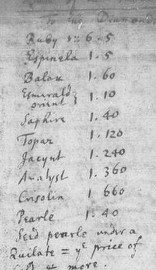 to his Diamond
Ruby 1: 6. 5
Espinela 1. 5
Balax 1. 60
Esmerald
orient } 1. 10
Saphire 1. 40
Topaz 1. 120
Jacynt 1. 240
1. 360
1 660
Pearle 1. 40
Seed pearls under a
Quilate = yᵉ price of
& more